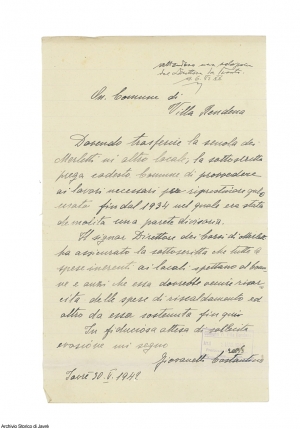 On. Comune di
Villa Rendena
Dovendo trasferire la scuola dei
Merletti in altro locale, la sottoscritta
prega codesto Comune di provvedere
ai lavori necessari per ripristinare quel
fin dal 1934 nel quale era stata
demolita una parete divisoria.
Il signor Direttore dei Corsi di
ha assicurato la sottoscritta che tutte le
spese inerenti ai locali spettano al Comu
ne e anzi che essa dovrebbe venire risar
cita delle spese di riscaldamento ed
altro da essa sostenute fin qui.
In fiduciosa attesa di sollecita
evasione mi segno
Giovanetti Costantina
Javrè 30.V.1948
Archivio Storico di Javrè